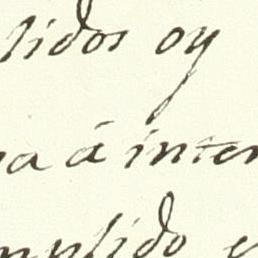 lidos oy
a á inter
mplido e